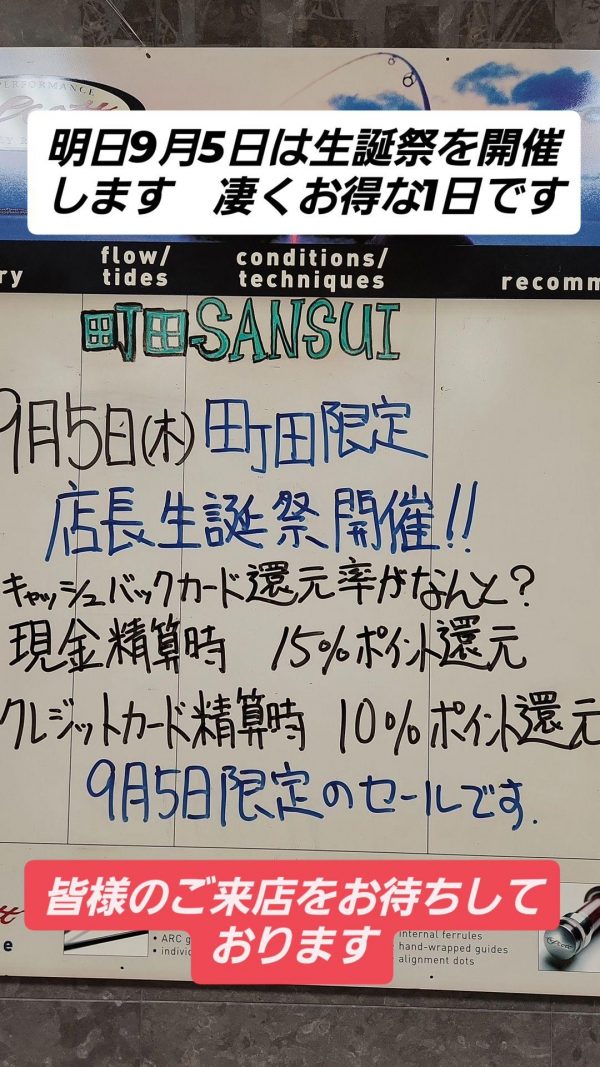 PERFORMANCE
明日9月5日は生誕祭を開催
します　凄くお得な1日です
flow/
tides
conditions/
techniques
ry
recomm
町田SANSUI
9月5日(木)町田限定
店長生誕祭開催!!
キャッシュバックカード還元率がなんと?
現金精算時 15%ポイント還元
クレジットカード精算時 10%ポイント還元
9月5日限定のセールです.
皆様のご来店をお待ちして
おります
e
• ARC g
• individ
internal ferrules
hand-wrapped guides
• alignment dots